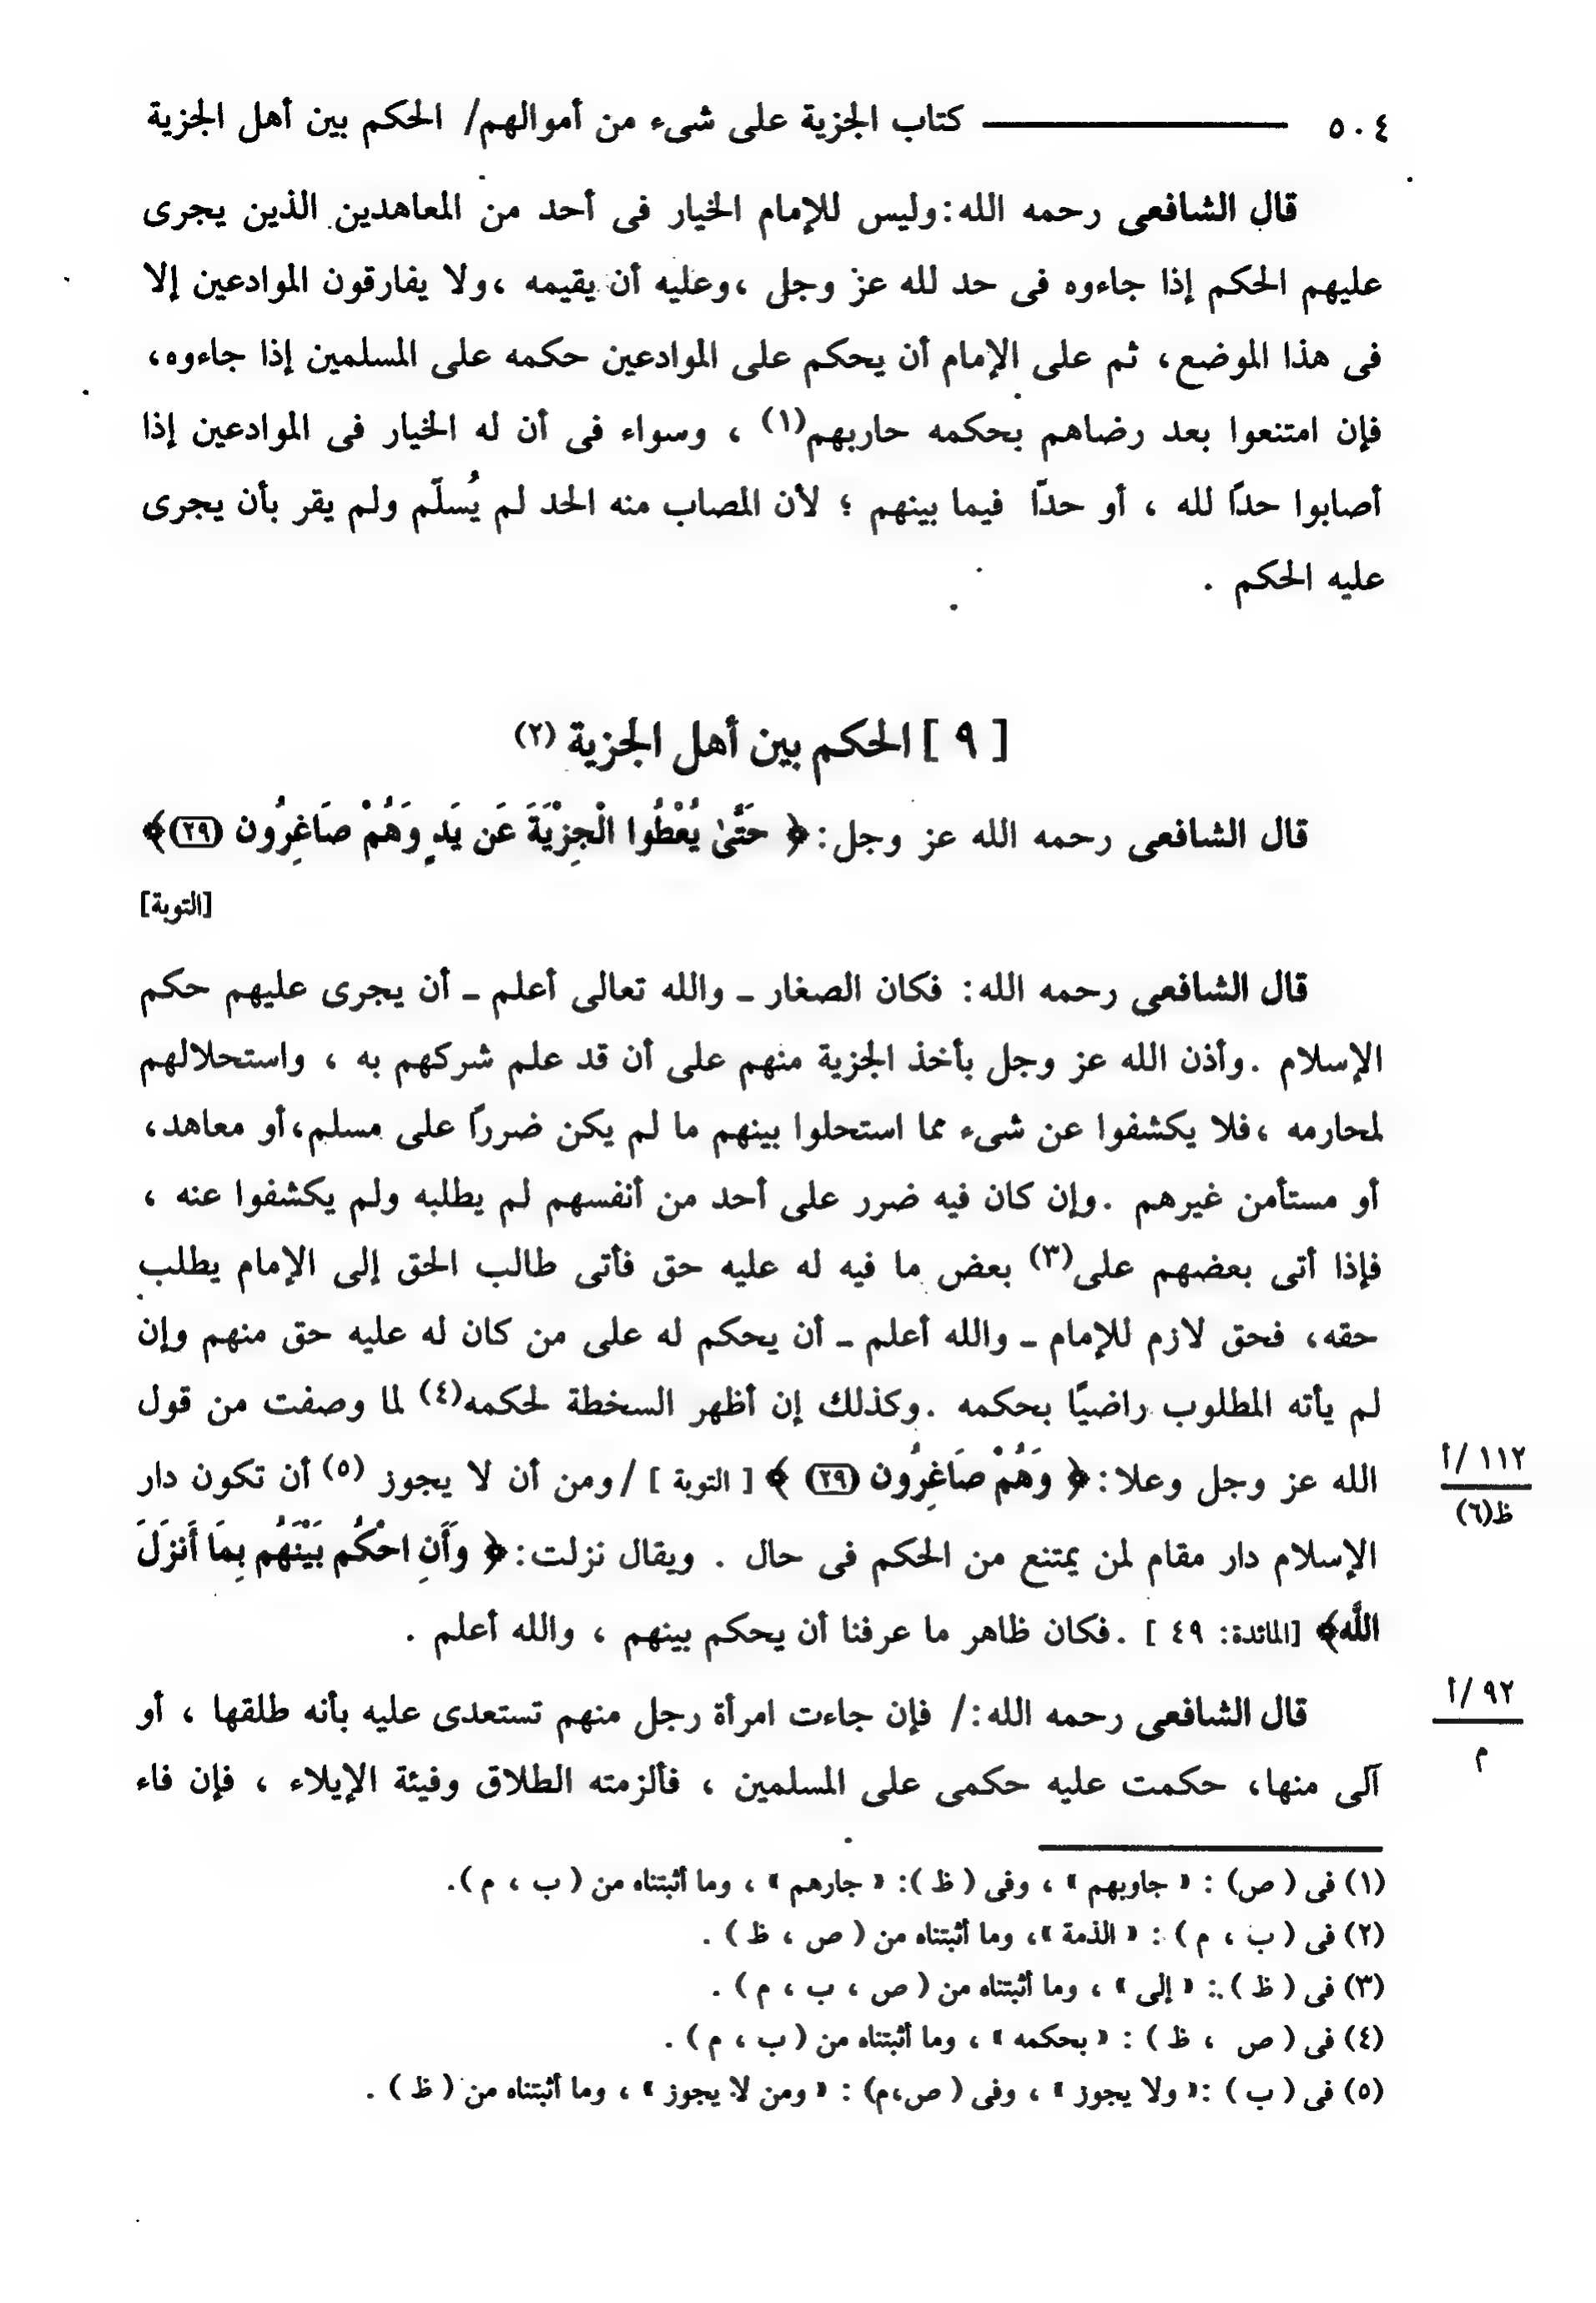 ٥٠٤ ـــــــــ كتاب الجزية على شىء من أموالهم/ الحكم بين أهل الجزية
قال الشافعى رحمه الله:وليس للإمام الخيار فى أحد من المعاهدين الذين يجرى
عليهم الحكم إذا جاءوه فى حد لله عز وجل ،وعليه أن يقيمه ،ولا يفارقون الموادعين إلا
فى هذا الموضع، ثم على الإمام أن يحكم على الموادعين حكمه على المسلمين إذا جاءوه،
فإن امتنعوا بعد رضاهم بحكمه حاربهم(١) ، وسواء فى أن له الخيار فى الموادعين إذا
أصابوا حدًا لله ، أو حدًّا فيما بينهم ؛ لأن المصاب منه الحد لم يُسلّم ولم يقر بأن يجرى
عليه الحكم .
[ ٩ ] الحكم بين أهل الجزية (٢)
قال الشافعى رحمه الله عز وجل:﴿ حَتَّىٰ يُعْطُوا الْجِزْيَةَ عَن يَدٍ وَهُمْ صَاغِرُونَ (٢٩)﴾
[التوبة]
قال الشافعى رحمه الله: فكان الصغار ـ والله تعالى أعلم ـ أن يجرى عليهم حكم
الإسلام .وأذن الله عز وجل بأخذ الجزية منهم على أن قد علم شركهم به ، واستحلالهم
لمحارمه ،فلا يكشفوا عن شىء مما استحلوا بينهم ما لم يكن ضررًا على مسلم،أو معاهد،
أو مستأمن غيرهم .وإن كان فيه ضرر على أحد من أنفسهم لم يطلبه ولم يكشفوا عنه ،
فإذا أتى بعضهم على(٣) بعض ما فيه له عليه حق فأتى طالب الحق إلى الإمام يطلب
حقه، فحق لازم للإمام ـ والله أعلم ـ أن يحكم له على من كان له عليه حق منهم وإن
لم يأته المطلوب راضيًا بحكمه .وكذلك إن أظهر السخطة لحكمه(٤) لما وصفت من قول
الله عز وجل وعلا:﴿ وَهُمْ صَاغِرُونَ (٢٩) ﴾ [ التوبة ] /ومن أن لا يجوز (٥) أن تكون دار
١١٢ /أ
ظ(٦)
الإسلام دار مقام لمن يمتنع من الحكم فى حال . ويقال نزلت:﴿ وَأَنِ احْكُم بَيْنَهُم بِمَا أَنزَلَ
اللَّه﴾ [المائدة: ٤٩ ] .فكان ظاهر ما عرفنا أن يحكم بينهم ، والله أعلم .
قال الشافعى رحمه الله:/ فإن جاءت امرأة رجل منهم تستعدى عليه بأنه طلقها ، أو
٩٢ /أ
م
آلى منها، حكمت عليه حكمى على المسلمين ، فألزمته الطلاق وفيئة الإيلاء ، فإن فاء
(١) فى ( ص) : « جاوبهم » ، وفى ( ظ ): « جارهم » ، وما أثبتناه من ( ب ، م ).
(٢) فى ( ب ، م ) : « الذمة »، وما أثبتناه من ( ص ، ظ ) .
(٣) فى ( ظ ) : « إلى » ، وما أثبتناه من ( ص ، ب ، م ) .
(٤) فى ( ص ، ظ ) : « بحكمه » ، وما أثبتناه من ( ب ، م ) .
(٥) فى ( ب ) :« ولا يجوز » ، وفى ( ص،م) : « ومن لا يجوز » ، وما أثبتناه من ( ظ ) .